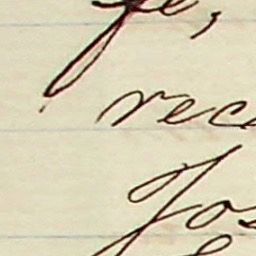 fe,
rec
Jos